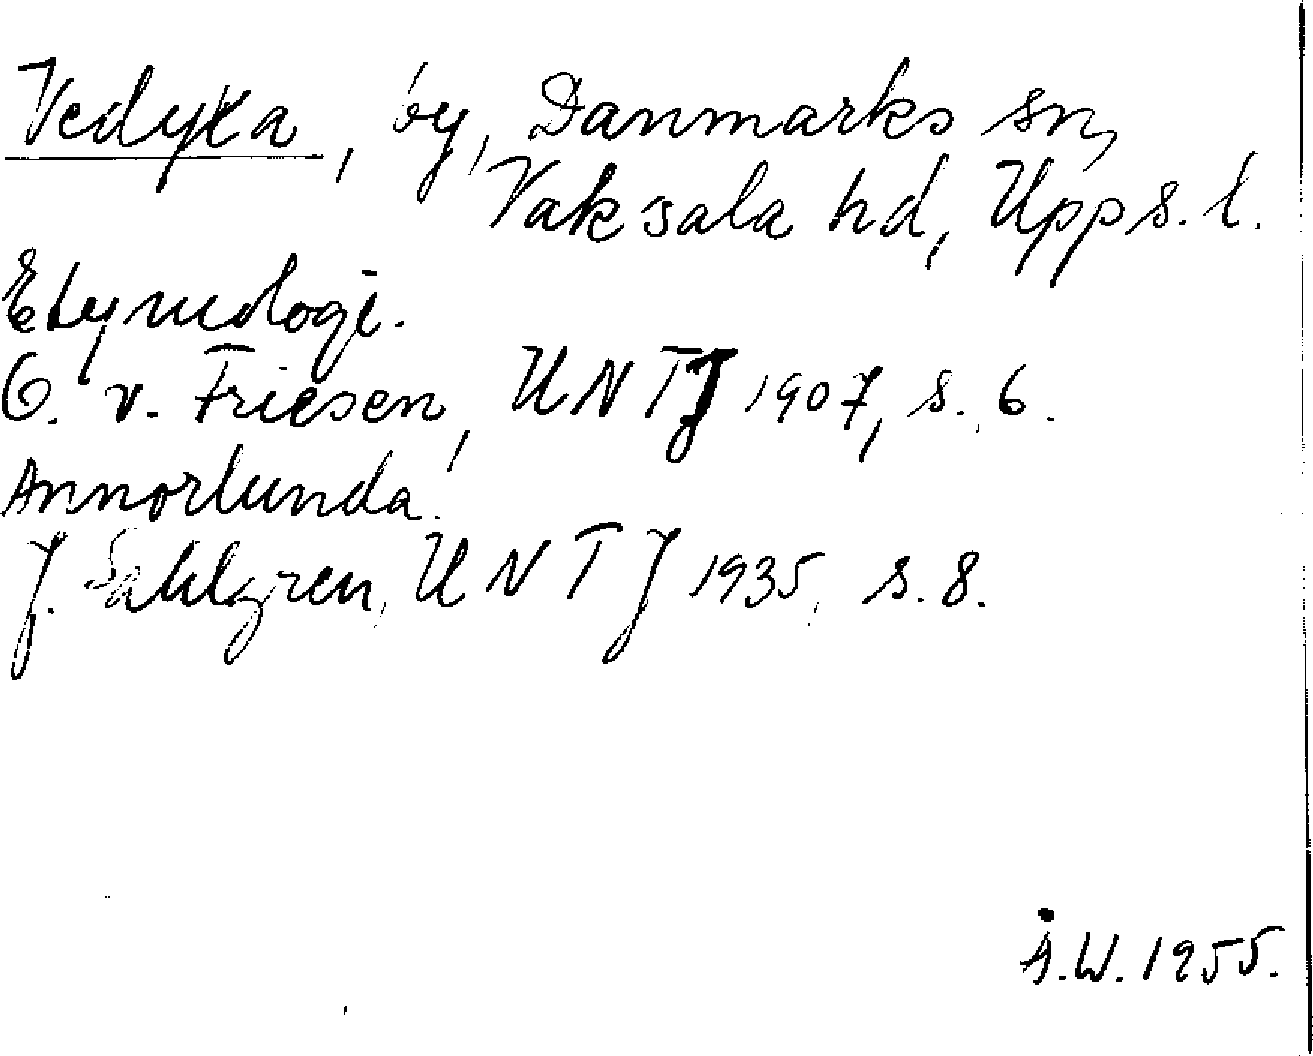 Vedyxa, by, Danmarks sn,
Vaksala hd, Upps. l.
Etymologi.
O. v. Friesen, UNTJ 1907, s. 6.
Annorlunda:
J. Sahlgren, UNTJ 1935, s. 8.
Å.W. 1955.